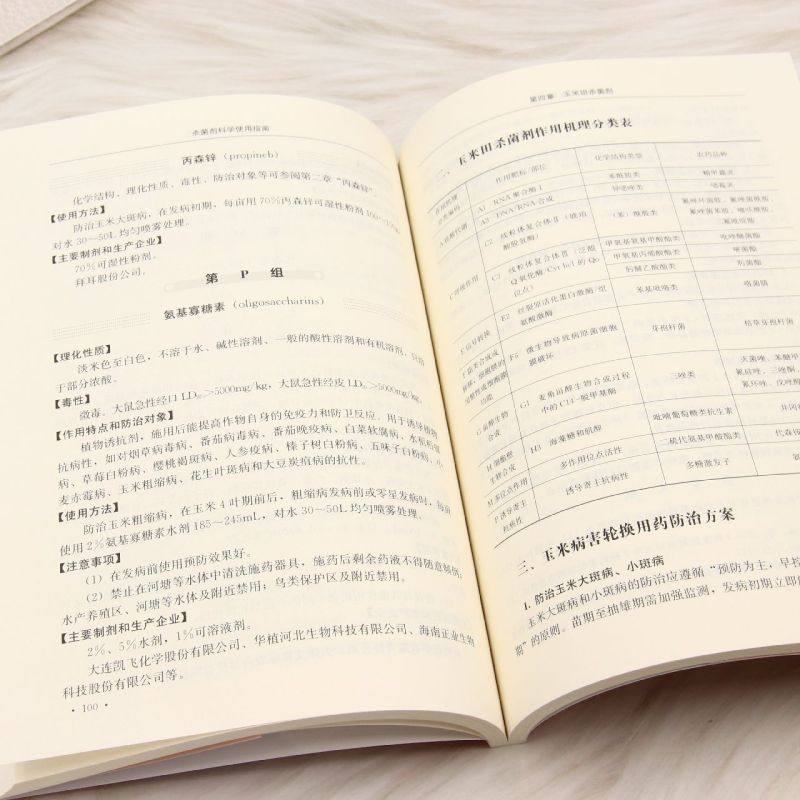 杀菌剂科学使用指南
丙森锌（propineb）
化学结构、理化性质、毒性、防治对象等可参阅第二章“丙森锌”。
【使用方法】
防治玉米大斑病，在发病初期，每亩用70%丙森锌可湿性粉剂
对水30～50L均匀喷雾处理。
【主要制剂和生产企业】
70%可湿性粉剂。
拜耳股份公司。
第 P 组
氨基寡糖素（oligosaccharins）
【理化性质】
淡米色至白色，不溶于水、碱性溶剂、一般的酸性溶剂和有机溶剂，只溶
于部分浓酸。
【毒性】
微毒。大鼠急性经口LD₅₀＞5000mg/kg，大鼠急性经皮LD₅₀＞5000mg/kg。
【作用特点和防治对象】
植物诱抗剂，施用后能提高作物自身的免疫力和防卫反应。用于诱导植物
抗病性，如对烟草病毒病、番茄病毒病、番茄晚疫病、白菜软腐病、水稻稻瘟
病、草莓白粉病、樱桃褐斑病、人参疫病、榛子树白粉病、五味子白粉病、小
麦赤霉病、玉米粗缩病、花生叶斑病和大豆炭疽病的抗性。
【使用方法】
防治玉米粗缩病，在玉米4叶期前后，粗缩病发病前或零星发病时，每亩
使用2%氨基寡糖素水剂185～245mL，对水30～50L均匀喷雾处理。
【注意事项】
（1）在发病前使用预防效果好。
（2）禁止在河塘等水体中清洗施药器具，施药后剩余药液不得随意倾倒；
水产养殖区、河塘等水体及附近禁用；鸟类保护区及附近禁用。
【主要制剂和生产企业】
2%、5%水剂，1%可溶液剂。
大连凯飞化学股份有限公司、华植河北生物科技有限公司、海南正业生物
科技股份有限公司等。
· 100 ·
第四章 玉米田杀菌剂
二、玉米田杀菌剂作用机理分类表
作用靶标/部位 化学结构类型 农药品种
A1 RNA聚合酶Ⅰ 苯酰胺类 精甲霜灵
A3 DNA/RNA合成 异噁唑类 噁霉灵
C呼吸作用
甲氧基氨基甲酸酯类 吡唑醚菌酯
肟菌酯
苯基吡咯类 咯菌腈
F6 微生物导致病原菌细胞
膜破坏
芽孢杆菌 枯草芽孢杆
G1 麦角甾醇生物合成过程
中的C14-脱甲基酶
三唑类
H3 海藻糖和肌醇 吡喃葡萄糖类抗生素
M多位点作用 多作用位点活性 二硫代氨基甲酸酯类
P诱导寄主
抗病性
诱导寄主抗病性 多糖激发子
三、玉米病害轮换用药防治方案
1. 防治玉米大斑病、小斑病
玉米大斑病和小斑病的防治应遵循“预防为主，早控
期”的原则。苗期至抽雄期需加强监测，发病初期立即